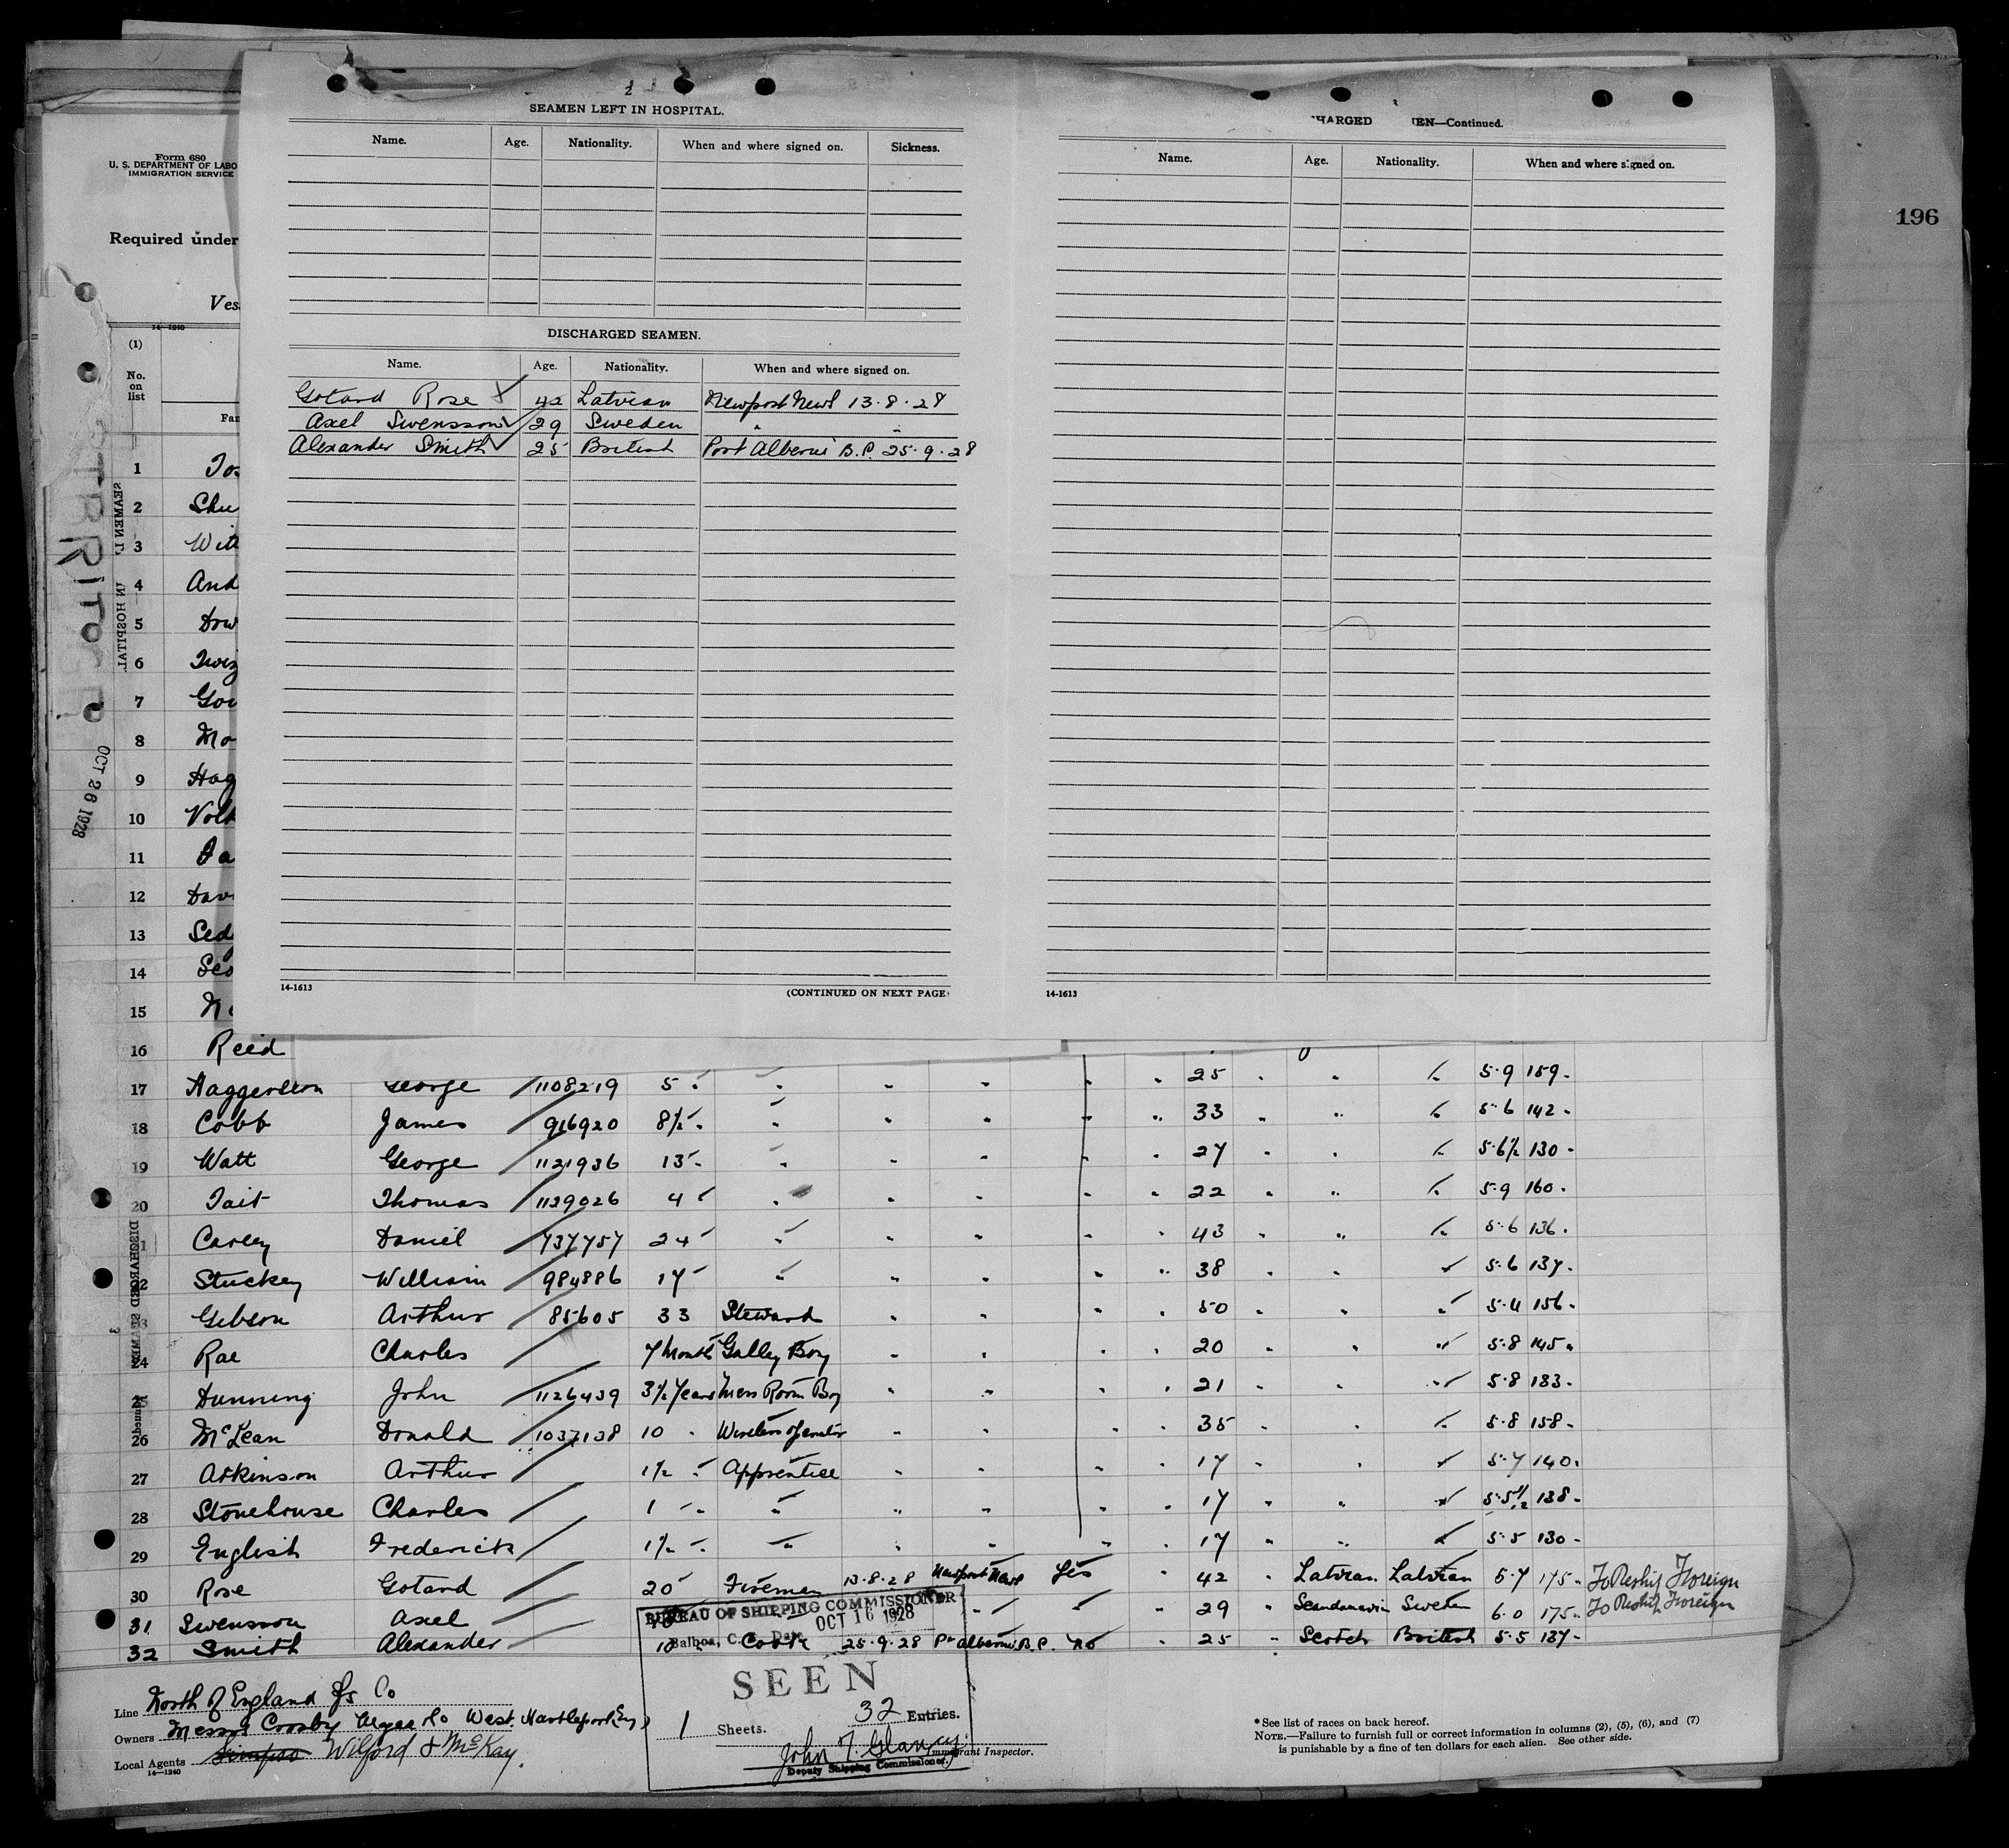 196
SEAMEN LEFT IN HOSPITAL.
Name. Age. Nationality. When and where signed on. Sickness.
DISCHARGED SEAMEN.
Name. Age. Nationality. When and where signed on.
Gotard Rose 42 Latvian Newport News 13.8.28
Axel Swensson 29 Sweden " "
Alexander Smith 25 British Port Alberni B.C. 25.9.28
14-1613
(CONTINUED ON NEXT PAGE
HARGED EN—Continued.
Name. Age. Nationality. When and where signed on.
14-1613
Form 680
U. S. DEPARTMENT OF LABO
IMMIGRATION SERVICE
Required under
Ves
14-1240
(1)
No. on list
Fam
SEAMEN L IN HOSPITAL
OCT 26 1928
DISCHARGED SEAMEN
1
2 Shu
3 Wil
4 And
5 Dow
6 Twiz
7 Gou
8 Mo
9 Hag
10 Volk
11
12 Davi
13 Sed
14 Sco
15
16 Reed
17 Haggerston George 1108219 5 " " " " " " 25 " " " 5.9 159
18 Cobb James 916920 8½ " " " " " " 33 " " " 5.6 142
19 Watt George 1121936 13 " " " " " " 27 " " " 5.6½ 130
20 Tait Thomas 1129026 4 " " " " " " 22 " " " 5.9 160
21 Carley Daniel 737757 24 " " " " " 43 " " " 5.6 136
22 Stuckey William 984886 17 " " " " " 38 " " " 5.6 137
23 Gibson Arthur 85605 33 Steward " " " " 50 " " " 5.4 156
24 Rae Charles 7 Months Galley Boy " " " " 20 " " " 5.8 145
25 Dunning John 1126439 3½ Years Mess Room Boy " " " " 21 " " " 5.8 133
26 McLean Donald 1037138 10 " Wireless Operator " " " " 35 " " " 5.8 158
27 Atkinson Arthur 1½ " Apprentice " " " " 17 " " " 5.7 140
28 Stonehouse Charles 1 " " " " " " 17 " " " 5.5½ 138
29 English Frederick 1½ " " " " " " 17 " " " 5.5 130
30 Rose Gotard 20 Fireman 13.8.28 Newport News Yes " 42 " Latvian Latvian 5.7 175 To Reship Foreign
31 Swensson Axel " " " 29 " Scandanavian Sweden 6.0 175 To Reship Foreign
32 Smith Alexander 10 " Cook 25.9.28 Pt Alberni B.C. No " 25 " Scotch British 5.5 137
BUREAU OF SHIPPING COMMISSIONER
Balboa, C. Z. Date OCT 16 1928
SEEN
1 Sheets. 32 Entries.
John T. Glancy
Immigrant Inspector.
Deputy Shipping Commissioner.
Line North of England Co
Owners Messrs Crosby West Hartlepool Eng
Local Agents Wilford & McKay.
14-1240
*See list of races on back hereof.
NOTE.—Failure to furnish full or correct information in columns (2), (5), (6), and (7)
is punishable by a fine of ten dollars for each alien. See other side.